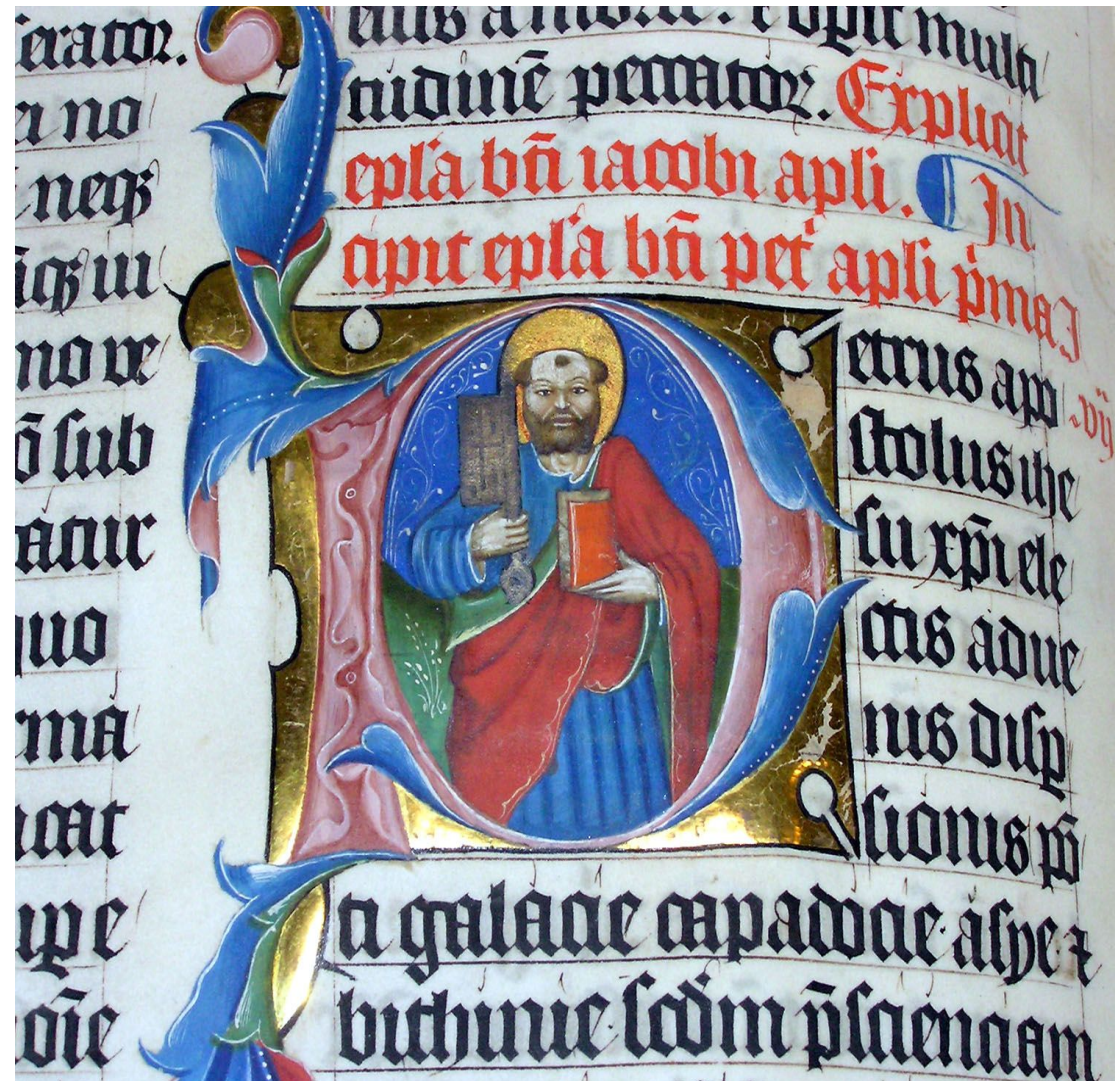 erator.
no
neqꝫ
ıcqꝫ iu
no ve
ō sub
atur
quo
rma
ıcat
ıpe
oīe
eius a morte. ⁊ opit multi
tudinē peccatoꝝ. Explicit
epl'a btī iacobi apli. ¶ In
cipit epl'a btī petˢ apli p̄ma I
P etrus apo .vij
stolus ihe
su xp̄i ele
ctis adue
nis disp̲
sionis pō
ti galacie capadocie. asye ⁊
bithinie scd̄m p̄scienciam